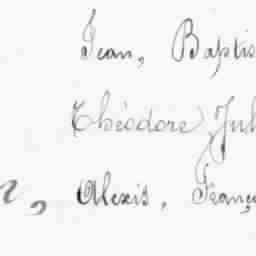 Jean, Baptis
Théodore, Jul
r, Alexis, Franç